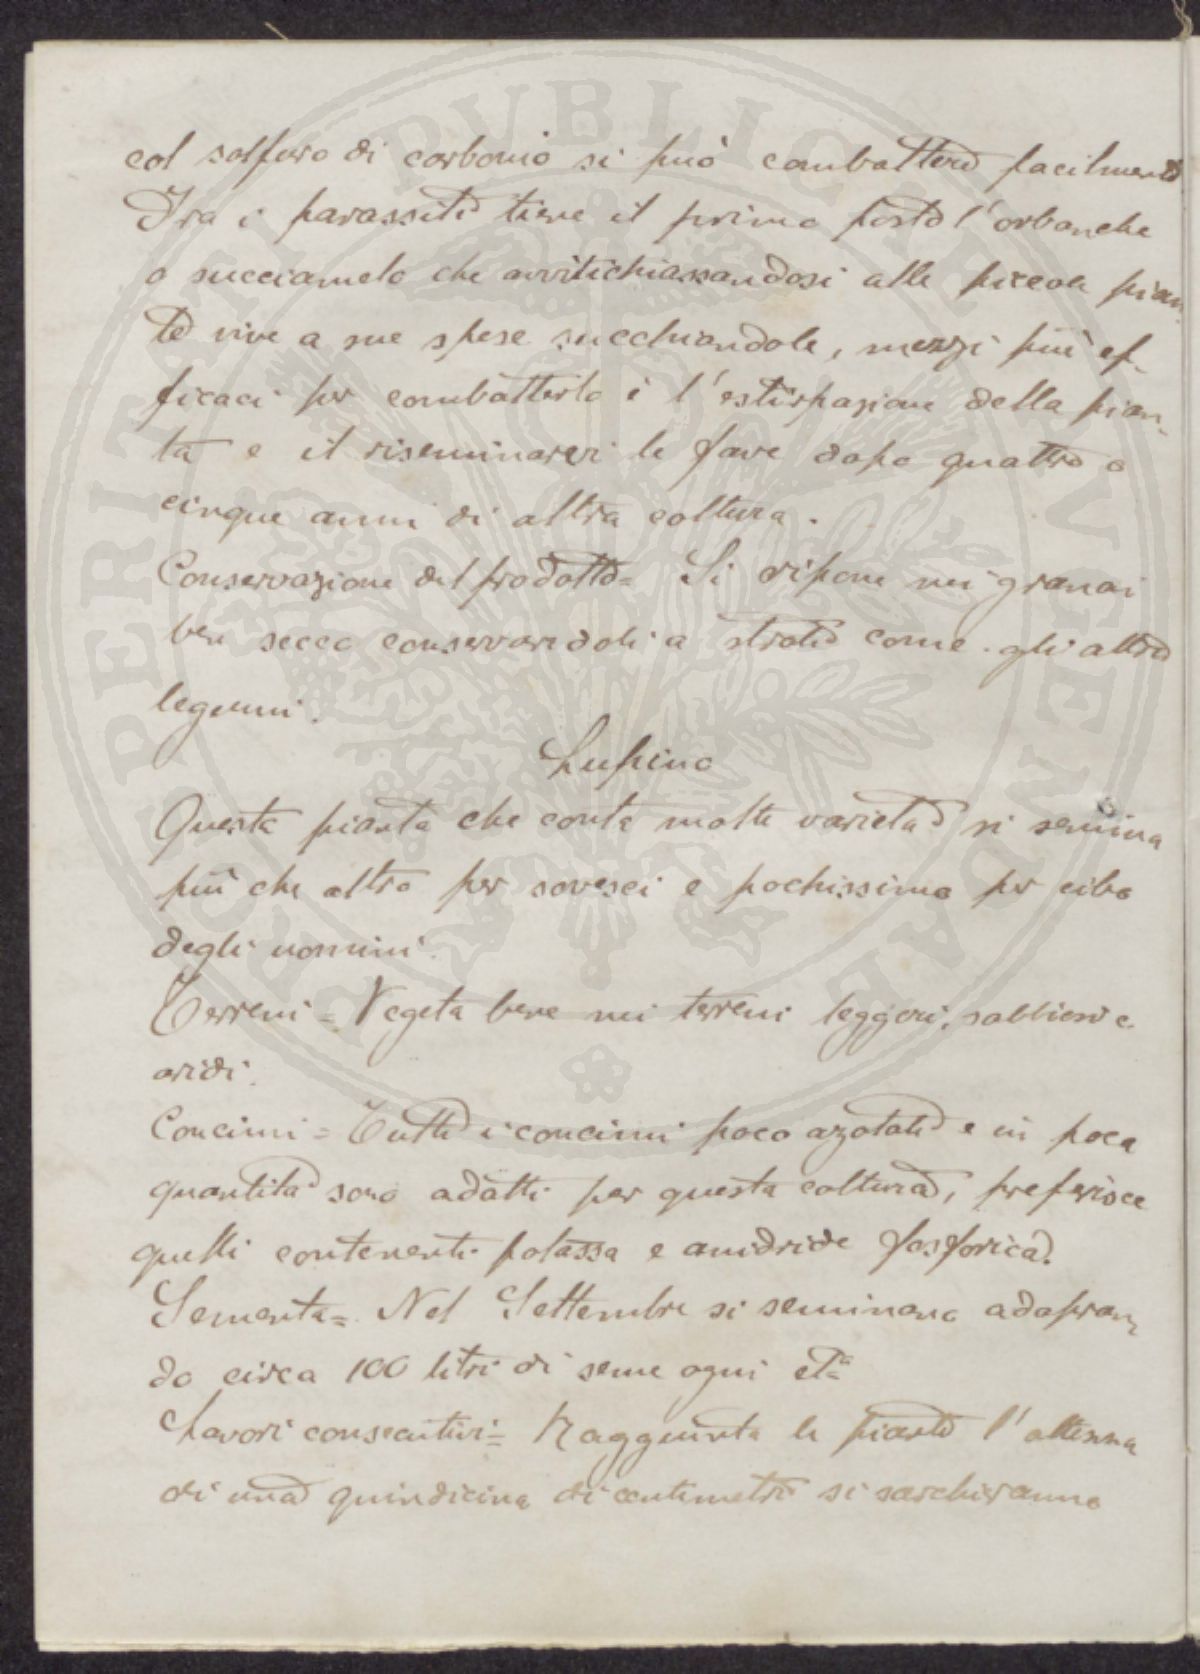 col solfuro di carbonio si può combattere facilmente
Tra i parassiti tiene il primo posto l'orbanche
o succiamelo che avvitichiassandosi alle piccole pian-
te vive a sue spese succhiandole, mezzi più ef-
ficaci per combatterlo è l'estirpazione della pian-
ta e il riseminarvi le fave dopo quattro o
cinque anni di altra coltura.
Conservazione del prodotto = Si ripone nei granai
ben secco conservandoli a strati come gli altri
legumi.
Lupino
Questa pianta che conta molte varietà si semina
più che altro per sovesci e pochissimo per cibo
degli uomini.
Terreni = Vegeta bene nei terreni leggeri, sabbiosi e
aridi.
Concimi = Tutti i concimi poco azotati e in poca
quantità sono adatti per questa coltura, preferisce
quelli contenenti potassa e anidride fosforica.
Sementa = Nel Settembre si seminano adopran-
do circa 100 litri di seme ogni eta
Lavori consecutivi = Raggiunta le piante l'altezza
di una quindicina di centimetri si sarchieranno
PROSPERITATI PUBLICAE AUGENDAE